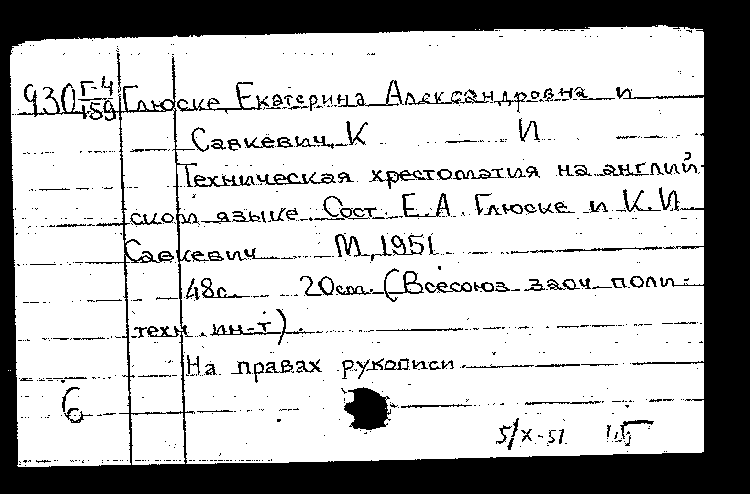 930 Г-4/159 Глюске, Екатерина Александровна и
Савкевич, К И
Техническая хрестоматия на англий-
ском языке Сост. Е.А. Глюске и К.И.
Савкевич М., 1951.
48с. 20см. (Всесоюз. заоч. поли-
техн. ин-т).
На правах рукописи.
6
5/X-51